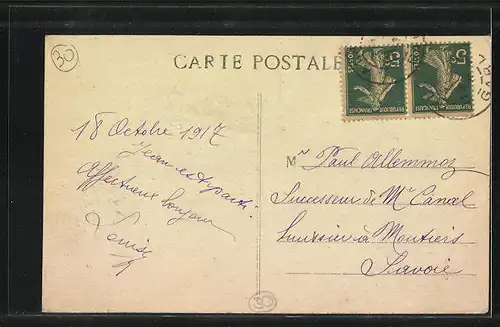 30
CARTE POSTALE
5c
POSTES
REPUBLIQUE FRANÇAISE
5c
REPUBLIQUE FRANÇAISE
18 Octobre 1917
Jean est parti.
Affectueux bonjour
Louise
Mr Paul Allemmoz
Successeur de Mr Cancel
à Moutiers
Savoie
30